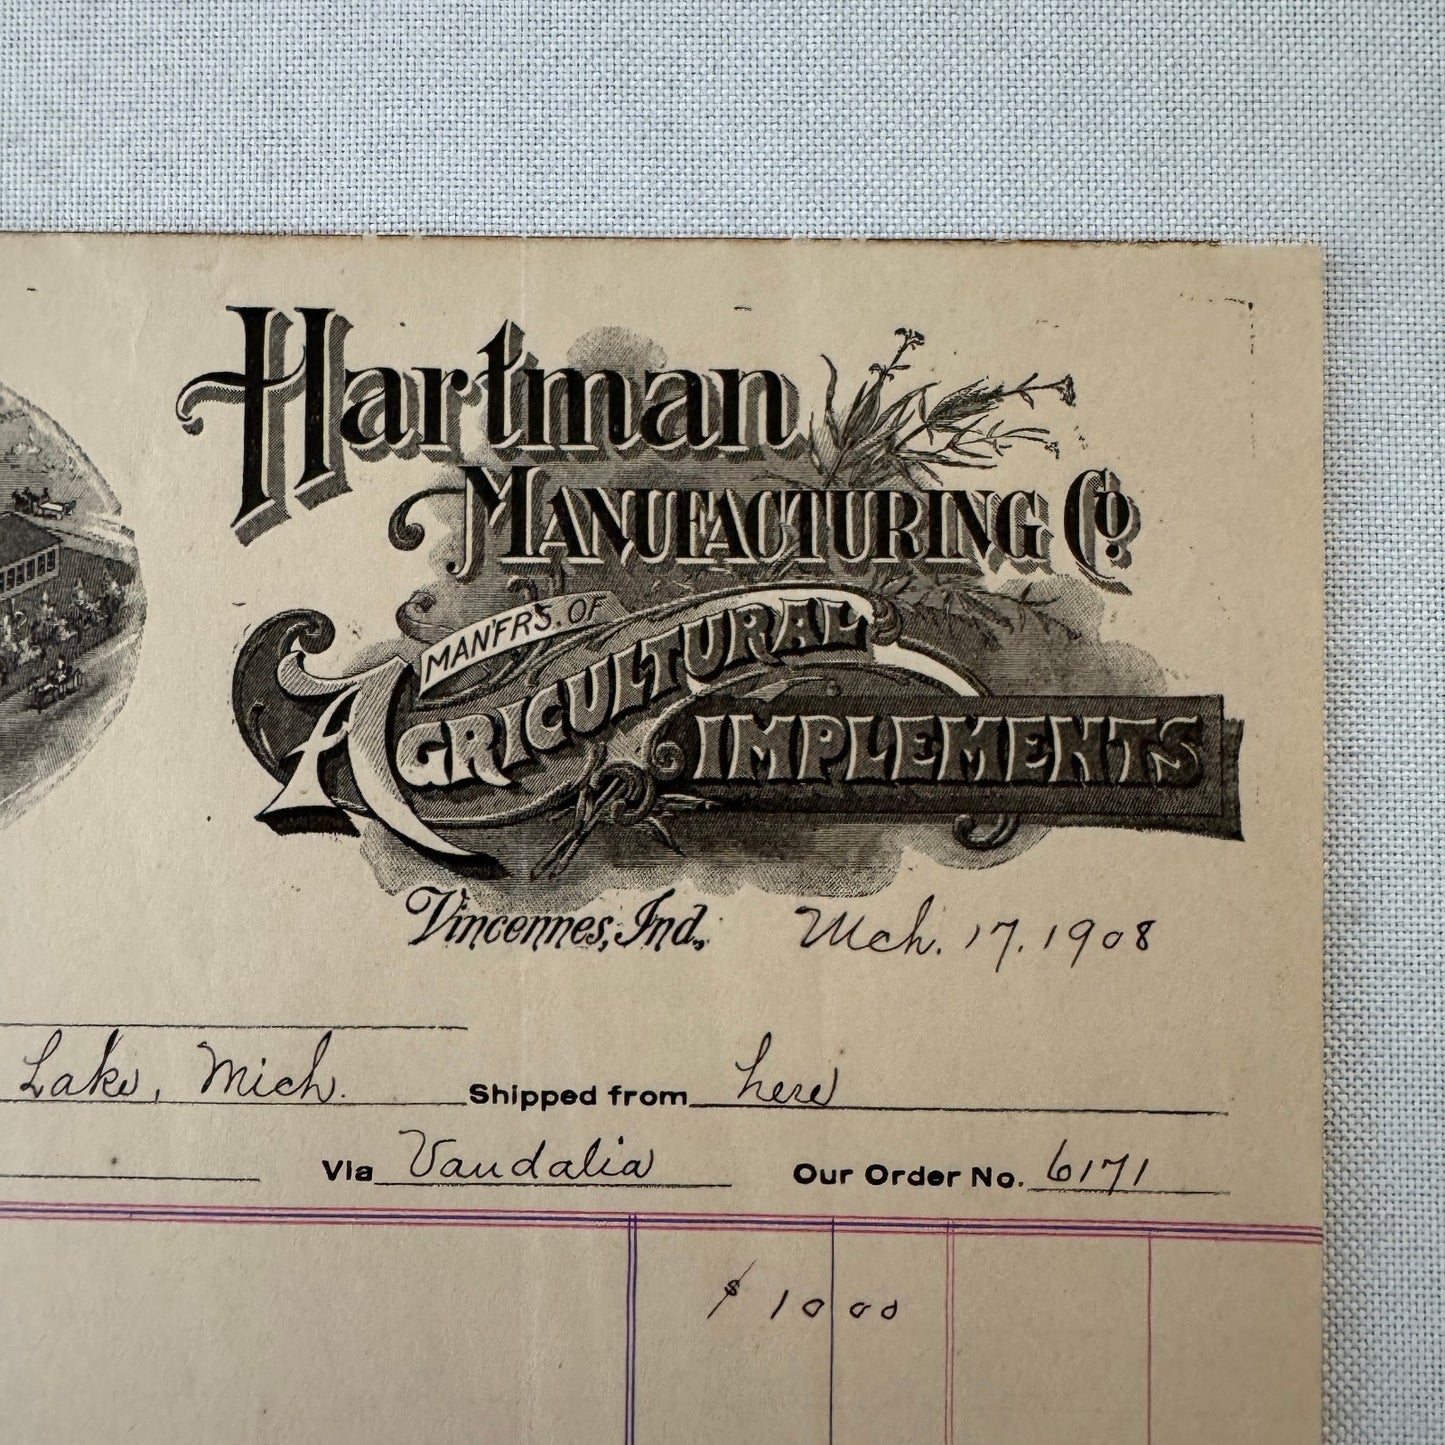 Hartman
MANUFACTURING CO.
MAN'FRS. OF
AGRICULTURAL
IMPLEMENTS
Vincennes, Ind., Mch. 17, 1908
Lake, Mich. Shipped from here
Via Vandalia Our Order No. 6171
$ 10 00